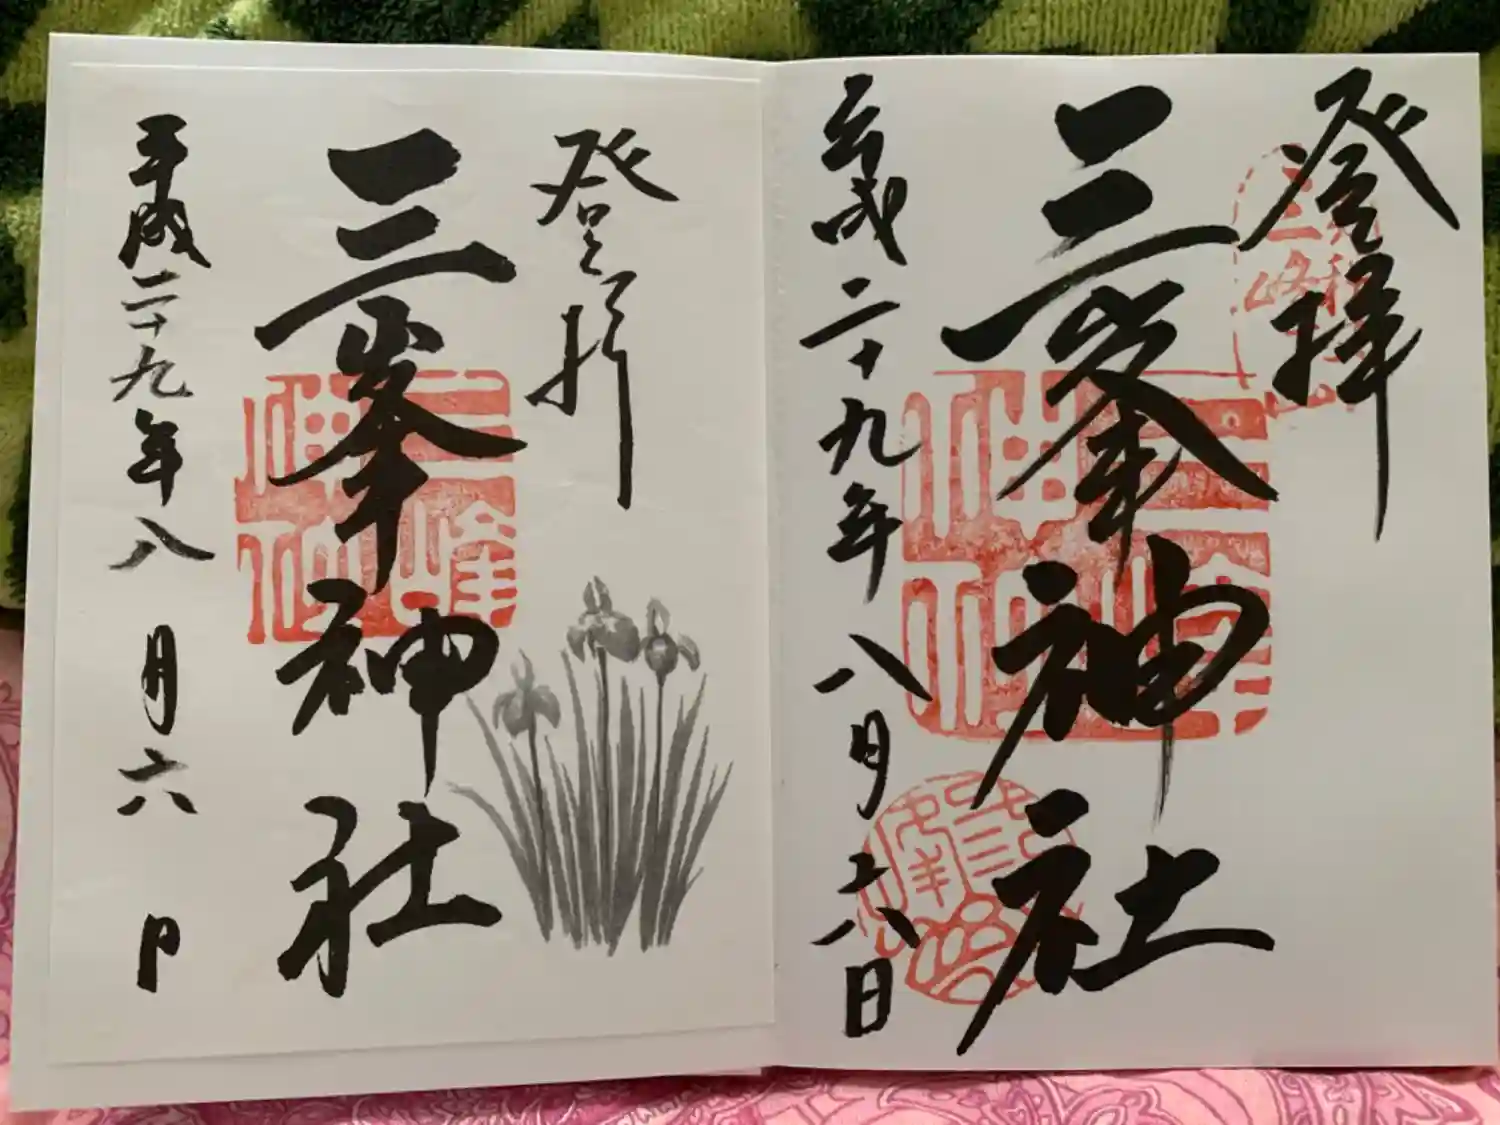 登拝
三峯神社
平成二十九年八月六日
三峰
神社
登拝
三峯神社
平成二十九年八月六日
三峰
神社